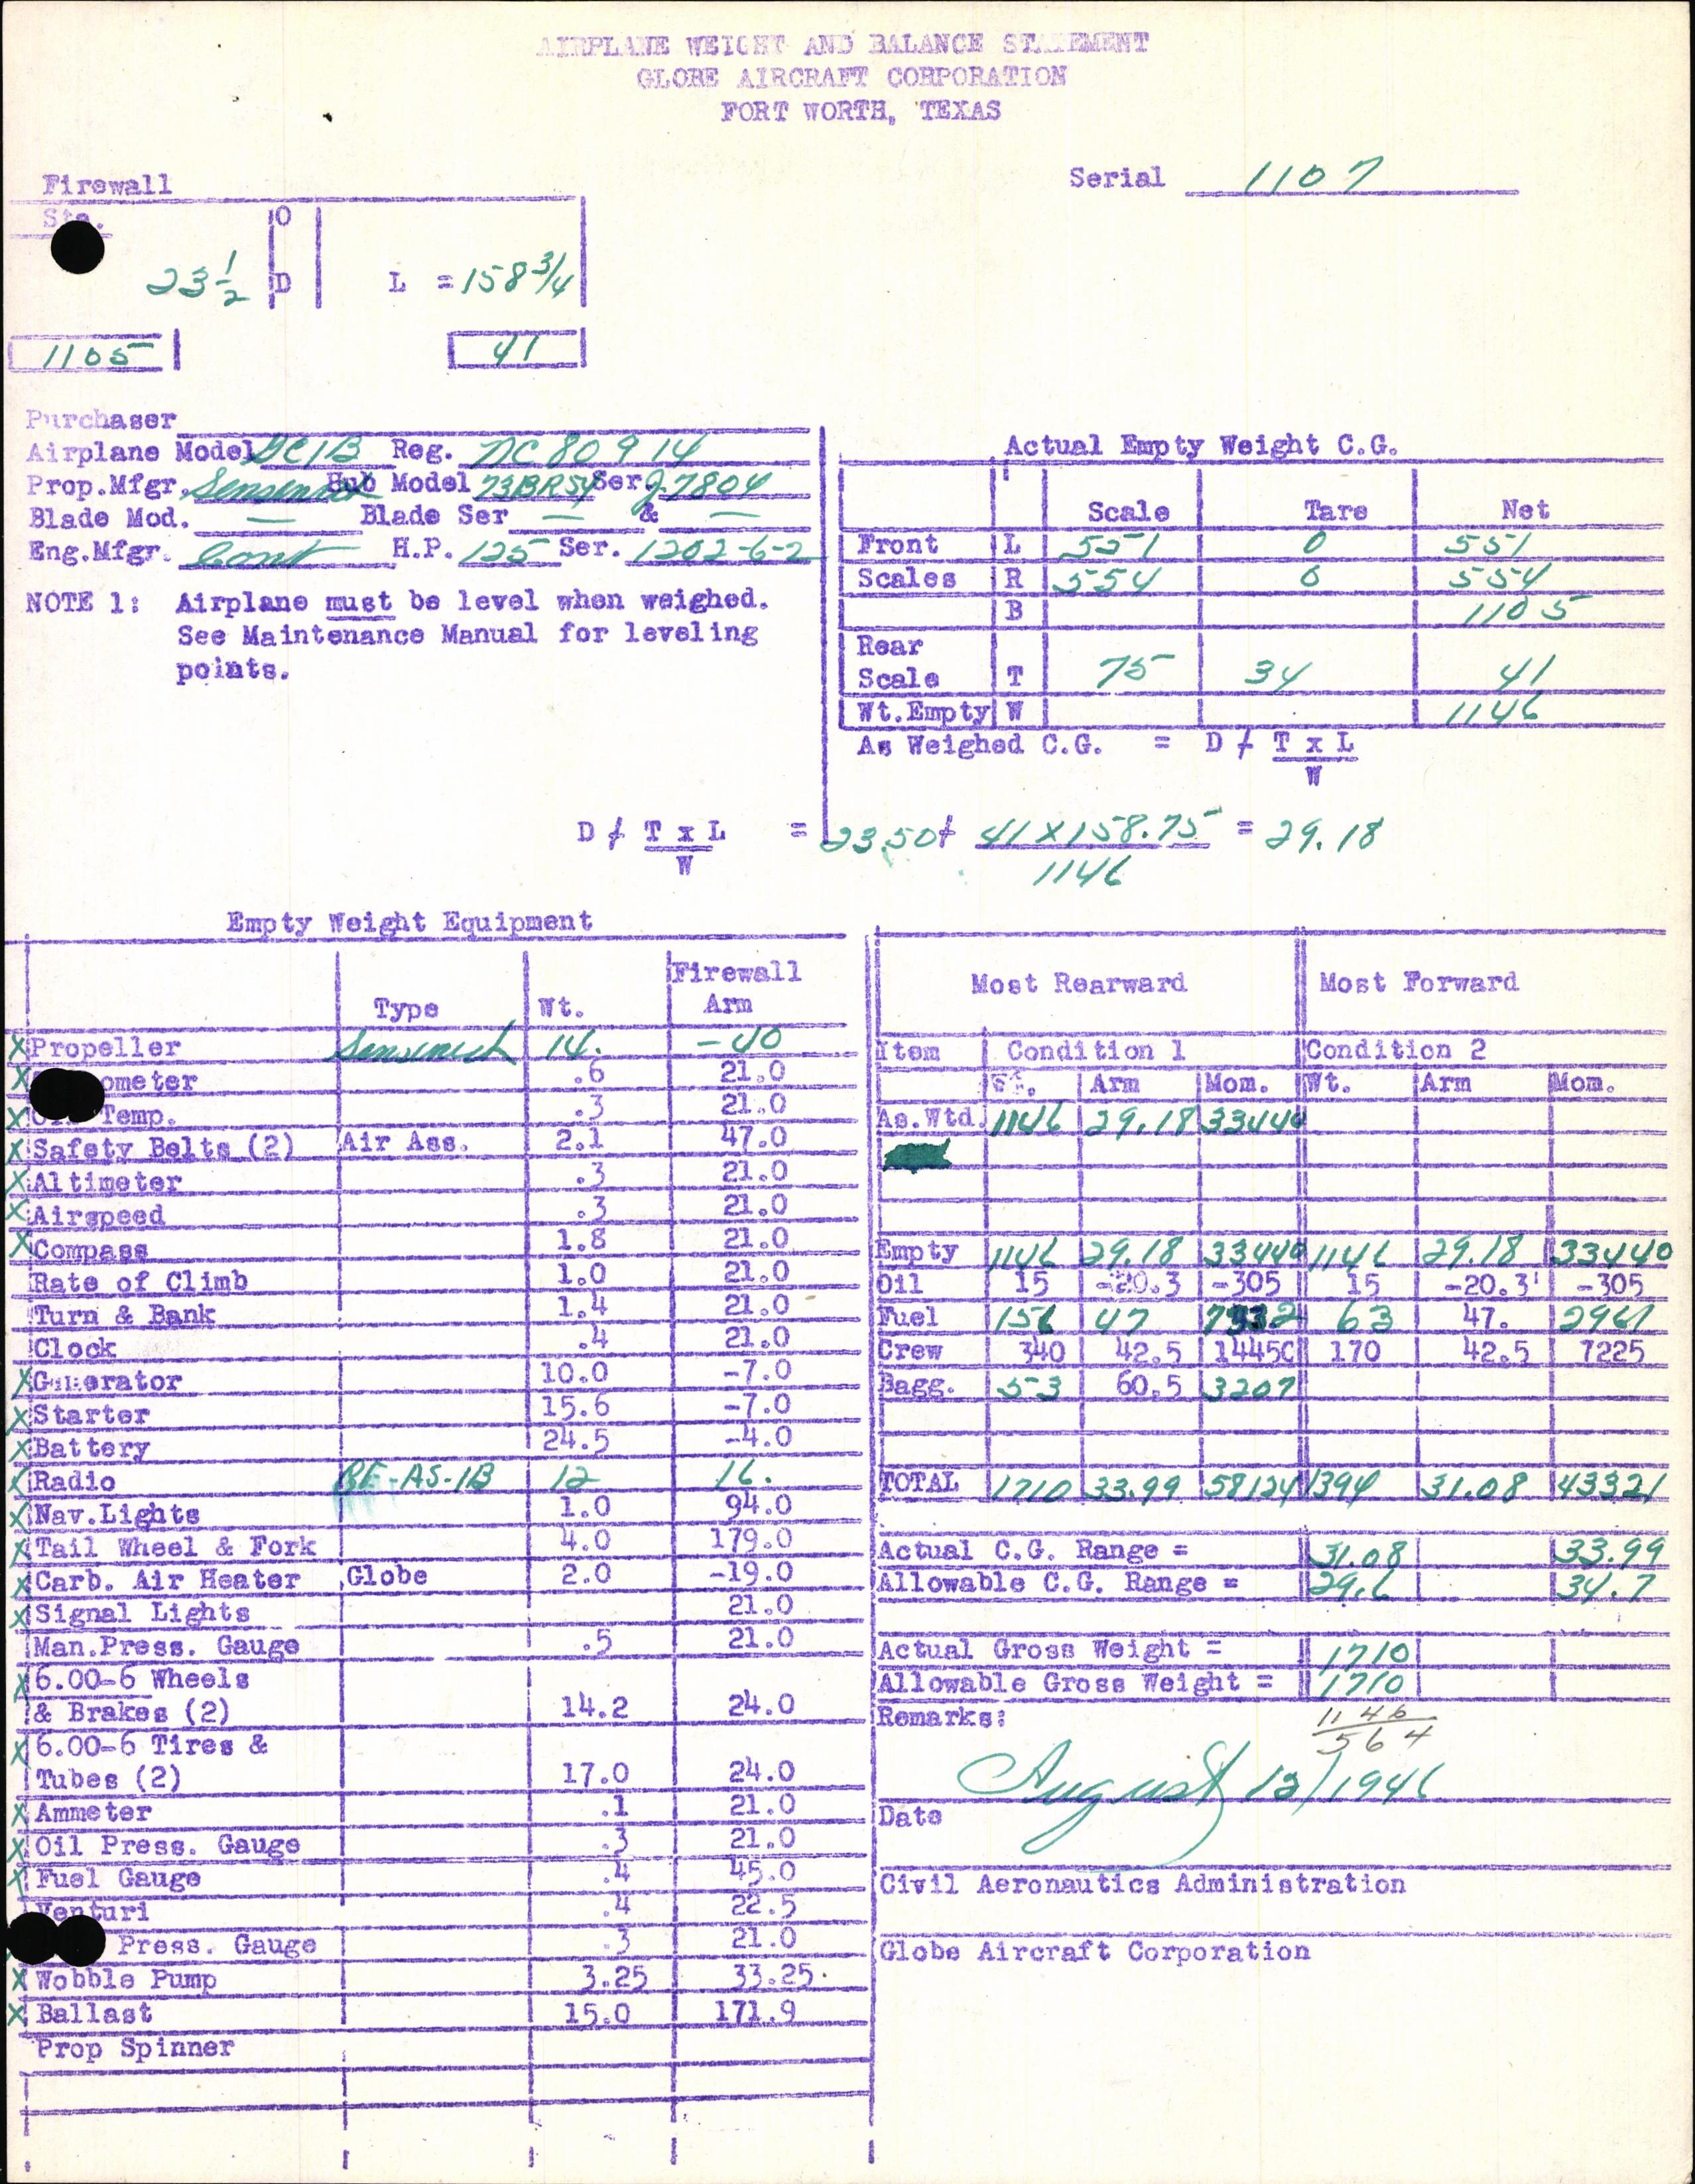 AIRPLANE WEIGHT AND BALANCE STATEMENT
GLOBE AIRCRAFT CORPORATION
FORT WORTH, TEXAS
Serial 1107
Firewall
Sta.
O
23 1/2 D L = 158 3/4
1105 41
Purchaser
Airplane Model GC1B Reg. NC 80914
Prop.Mfgr. Sensenich Hub Model 73BR54 Ser. 27804
Blade Mod. — Blade Ser — & —
Eng.Mfgr. Cont H.P. 125 Ser. 1202-6-2
NOTE 1: Airplane must be level when weighed.
See Maintenance Manual for leveling
points.
Actual Empty Weight C.G.
Scale Tare Net
Front L 551 0 551
Scales R 554 0 554
B 1105
Rear
Scale T 75 34 41
Wt.Empty W 1146
As Weighed C.G. = D ≠ T x L
W
D ≠ T x L = 23.50 + 41 X 158.75 = 29.18
W 1146
Empty Weight Equipment
Type Wt. Firewall Arm
X Propeller Sensenich 14. -40
X ometer .6 21.0
X Temp. .3 21.0
X Safety Belts (2) Air Ass. 2.1 47.0
X Altimeter .3 21.0
X Airspeed .3 21.0
X Compass 1.8 21.0
Rate of Climb 1.0 21.0
Turn & Bank 1.4 21.0
Clock .4 21.0
X Generator 10.0 -7.0
X Starter 15.6 -7.0
X Battery 24.5 -4.0
X Radio RE-AS-1B 12 16.
X Nav.Lights 1.0 94.0
X Tail Wheel & Fork 4.0 179.0
X Carb. Air Heater Globe 2.0 -19.0
X Signal Lights 21.0
Man.Press. Gauge .5 21.0
X 6.00-6 Wheels
& Brakes (2) 14.2 24.0
X 6.00-6 Tires &
Tubes (2) 17.0 24.0
X Ammeter .1 21.0
X Oil Press. Gauge .3 21.0
X Fuel Gauge .4 45.0
Venturi .4 22.5
Press. Gauge .3 21.0
X Wobble Pump 3.25 33.25
X Ballast 15.0 171.9
Prop Spinner
Most Rearward Most Forward
Item Condition 1 Condition 2
Wt. Arm Mom. Wt. Arm Mom.
As.Wtd. 1146 29.18 33440
Empty 1146 29.18 33440 1146 29.18 33440
Oil 15 -20.3 -305 15 -20.3 -305
Fuel 156 47 7332 63 47. 2961
Crew 340 42.5 14450 170 42.5 7225
Bagg. 53 60.5 3207
TOTAL 1710 33.99 58124 1394 31.08 43321
Actual C.G. Range = 31.08 33.99
Allowable C.G. Range = 29.6 34.7
Actual Gross Weight = 1710
Allowable Gross Weight = 1710
Remarks: 1146
564
August 12/1946
Date
Civil Aeronautics Administration
Globe Aircraft Corporation